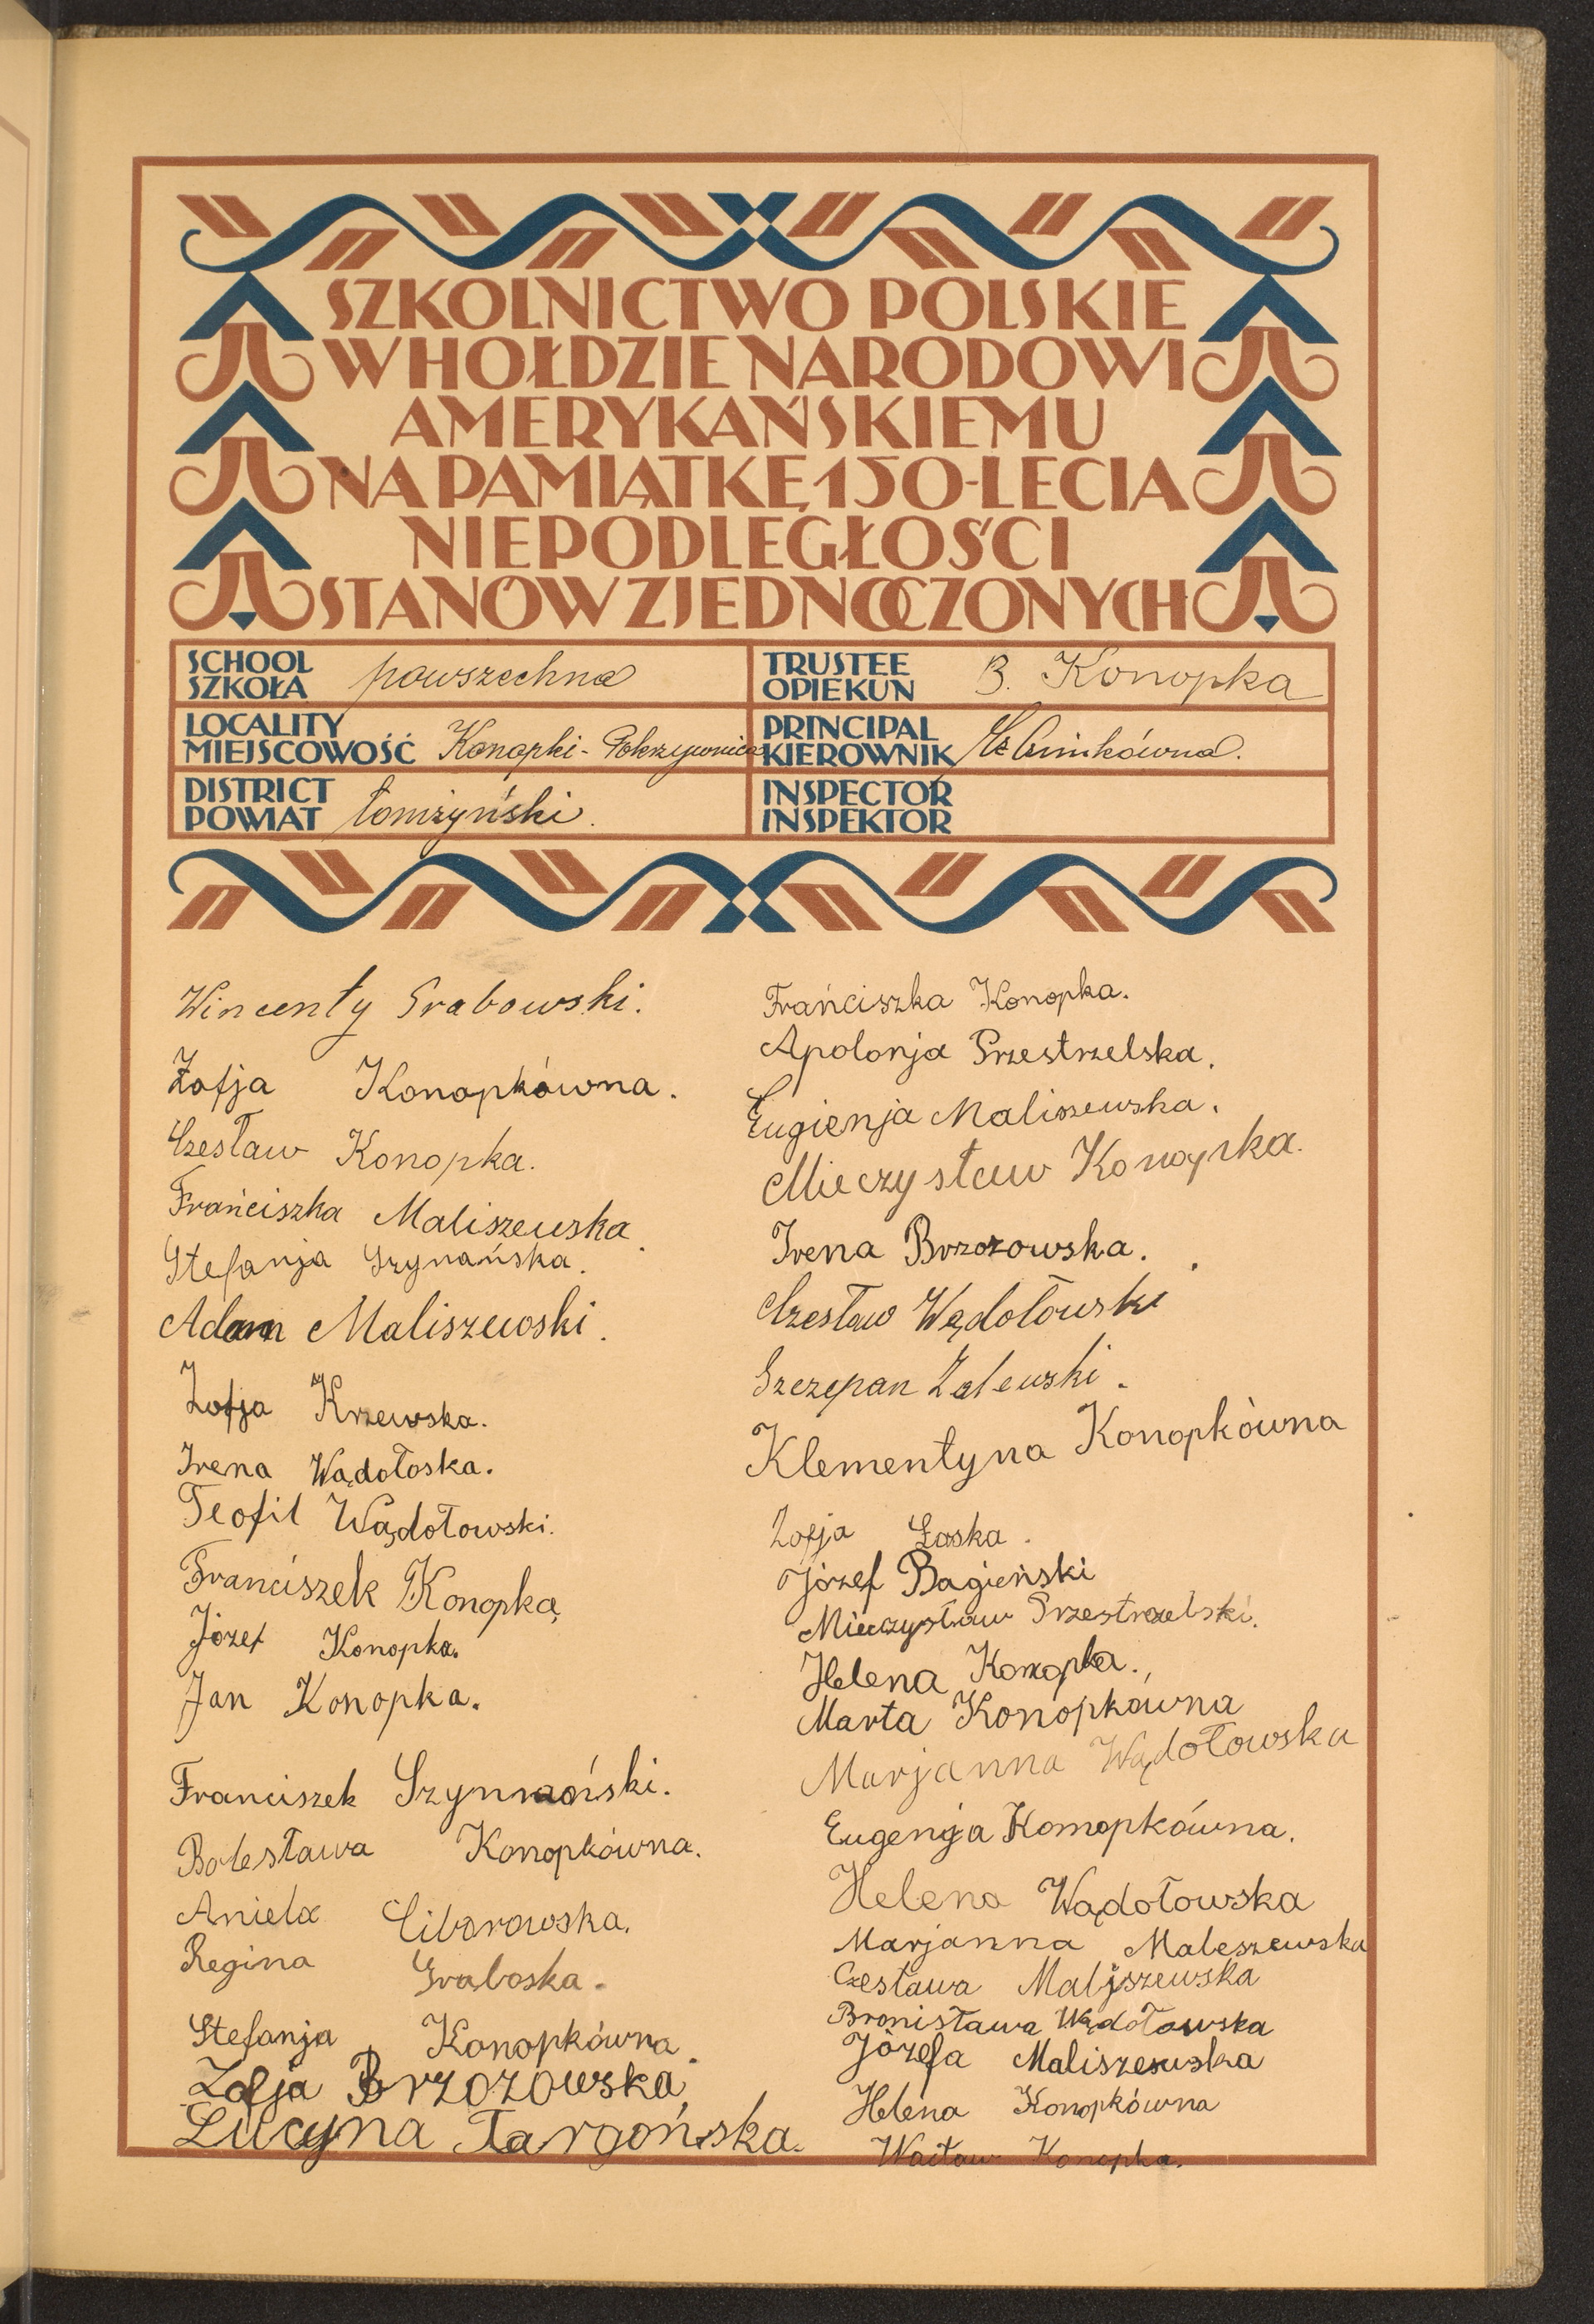 SZKOLNICTWO POLSKIE
W HOŁDZIE NARODOWI
AMERYKAŃSKIEMU
NA PAMIĄTKĘ 150-LECIA
NIEPODLEGŁOŚCI
STANÓW ZJEDNOCZONYCH
SCHOOL
SZKOŁA powszechna
TRUSTEE
OPIEKUN B. Konopka
LOCALITY
MIEJSCOWOŚĆ Konopki-Pokrzywnica
PRINCIPAL
KIEROWNIK
DISTRICT
POWIAT Łomżyński.
INSPECTOR
INSPEKTOR
Wincenty Grabowski.
Zofja Konopkówna.
Czesław Konopka.
Frańciszka Maliszewska.
Stefanja Szynańska.
Adam Maliszewski.
Zofja Krzewska.
Irena Wądołoska.
Teofil Wądołowski.
Franciszek Konopka
Józef Konopka.
Jan Konopka.
Franciszek Szymański.
Bolesława Konopkówna.
Aniela Ciborowska.
Regina Graboska.
Stefanja Konopkówna.
Zofja Brzozowska
Lucyna Targońska.
Frańciszka Konopka.
Apolonja Przestrzelska.
Eugienja Maliszewska.
Mieczysław Konopka.
Irena Brzozowska.
Czesław Wądołowski
Szczepan Zalewski.
Klementyna Konopkówna
Zofja Łaska.
Józef Bagieński
Mieczysław Przestrzelski.
Helena Konopka.
Marta Konopkówna
Marjanna Wądołowska
Eugenja Konopkówna.
Helena Wądołowska
Marjanna Maleszewska
Czesława Maljszewska
Bronisława Wądołowska
Józefa Maliszewska
Helena Konopkówna
Wacław Konopka.